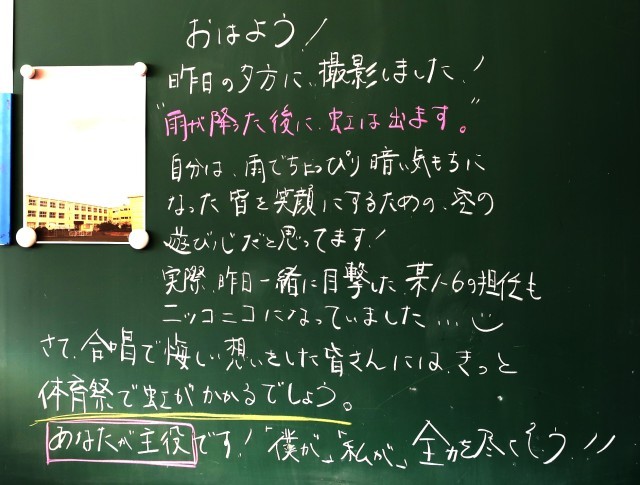 おはよう!
昨日の夕方に、撮影しました!
"雨が降った後に、虹は出ます。"
自分は、雨でちょっぴり暗い気もちに
なった皆を笑顔にするための、空の
遊び心だと思ってます!
実際、昨日一緒に目撃した、某1-6の担任も
ニッコニコになっていました...
さて、合唱で悔しい想いをした皆さんには、きっと
体育祭で虹がかかるでしょう。
あなたが主役です!「僕が」「私が」全力を尽くそう!!